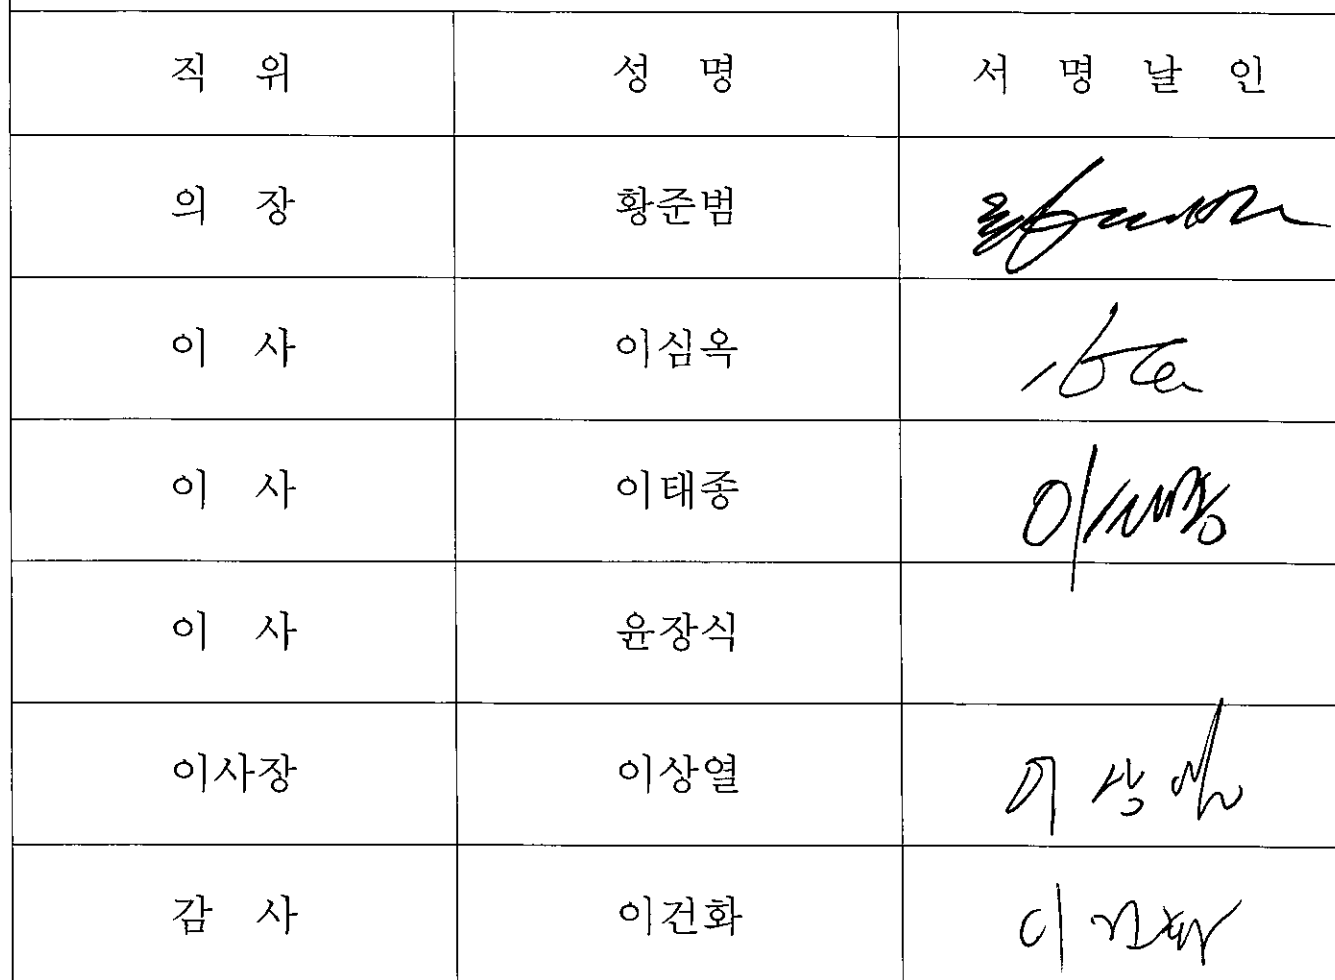 직 위 성 명 서 명 날 인
의 장 황준범
이 사 이심옥
이 사 이태종 이태종
이 사 윤장식
이사장 이상열 이상열
감 사 이건화 이건화